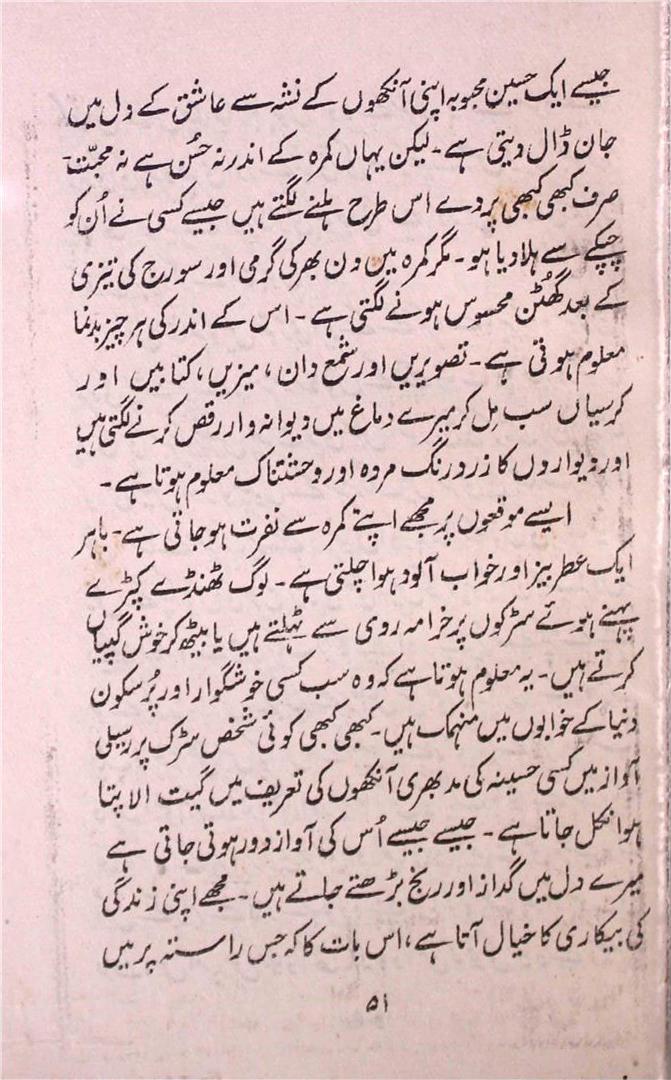 جیسے ایک حسین محبوبہ اپنی آنکھوں کے نشہ سے عاشق کے دل میں
جان ڈال دیتی ہے۔ لیکن یہاں کمرہ کے اندر نہ حُسن ہے نہ محبّت
صرف کبھی کبھی پردے اس طرح ہلنے لگتے ہیں جیسے کسی نے اُن کو
چپکے سے ہلا دیا ہو۔ مگر کمرہ میں دن بھر کی گرمی اور سورج کی تیزی
کے بعد گھُٹن محسوس ہونے لگتی ہے۔ اس کے اندر کی ہر چیز بدنما
معلوم ہوتی ہے۔ تصویریں اور شمع دان، میزیں، کتابیں اور
کرسیاں سب مِل کر میرے دماغ میں دیوانہ وار رقص کرنے لگتی ہیں
اور دیواروں کا زرد رنگ مردہ اور وحشتناک معلوم ہوتا ہے۔
ایسے موقعوں پر مجھے اپنے کمرہ سے نفرت ہو جاتی ہے۔ باہر
ایک عطر بیز اور خواب آلود ہوا چلتی ہے۔ لوگ ٹھنڈے کپڑے
پہنے ہوئے سڑکوں پر خرامہ روی سے ٹہلتے ہیں یا بیٹھ کر خوش گپیاں
کرتے ہیں۔ یہ معلوم ہوتا ہے کہ وہ سب کسی خوشگوار اور پُرسکون
دنیا کے خوابوں میں منہمک ہیں۔ کبھی کبھی کوئی شخص سڑک پر رسیلی
آواز میں کسی حسینہ کی مدبھری آنکھوں کی تعریف میں گیت الاپتا
ہوا نکل جاتا ہے۔ جیسے جیسے اُس کی آواز دور ہوتی جاتی ہے
میرے دل میں گداز اور رنج بڑھتے جاتے ہیں۔ مجھے اپنی زندگی
کی بیکاری کا خیال آتا ہے، اس بات کا کہ جس راستہ پر میں
۵۱